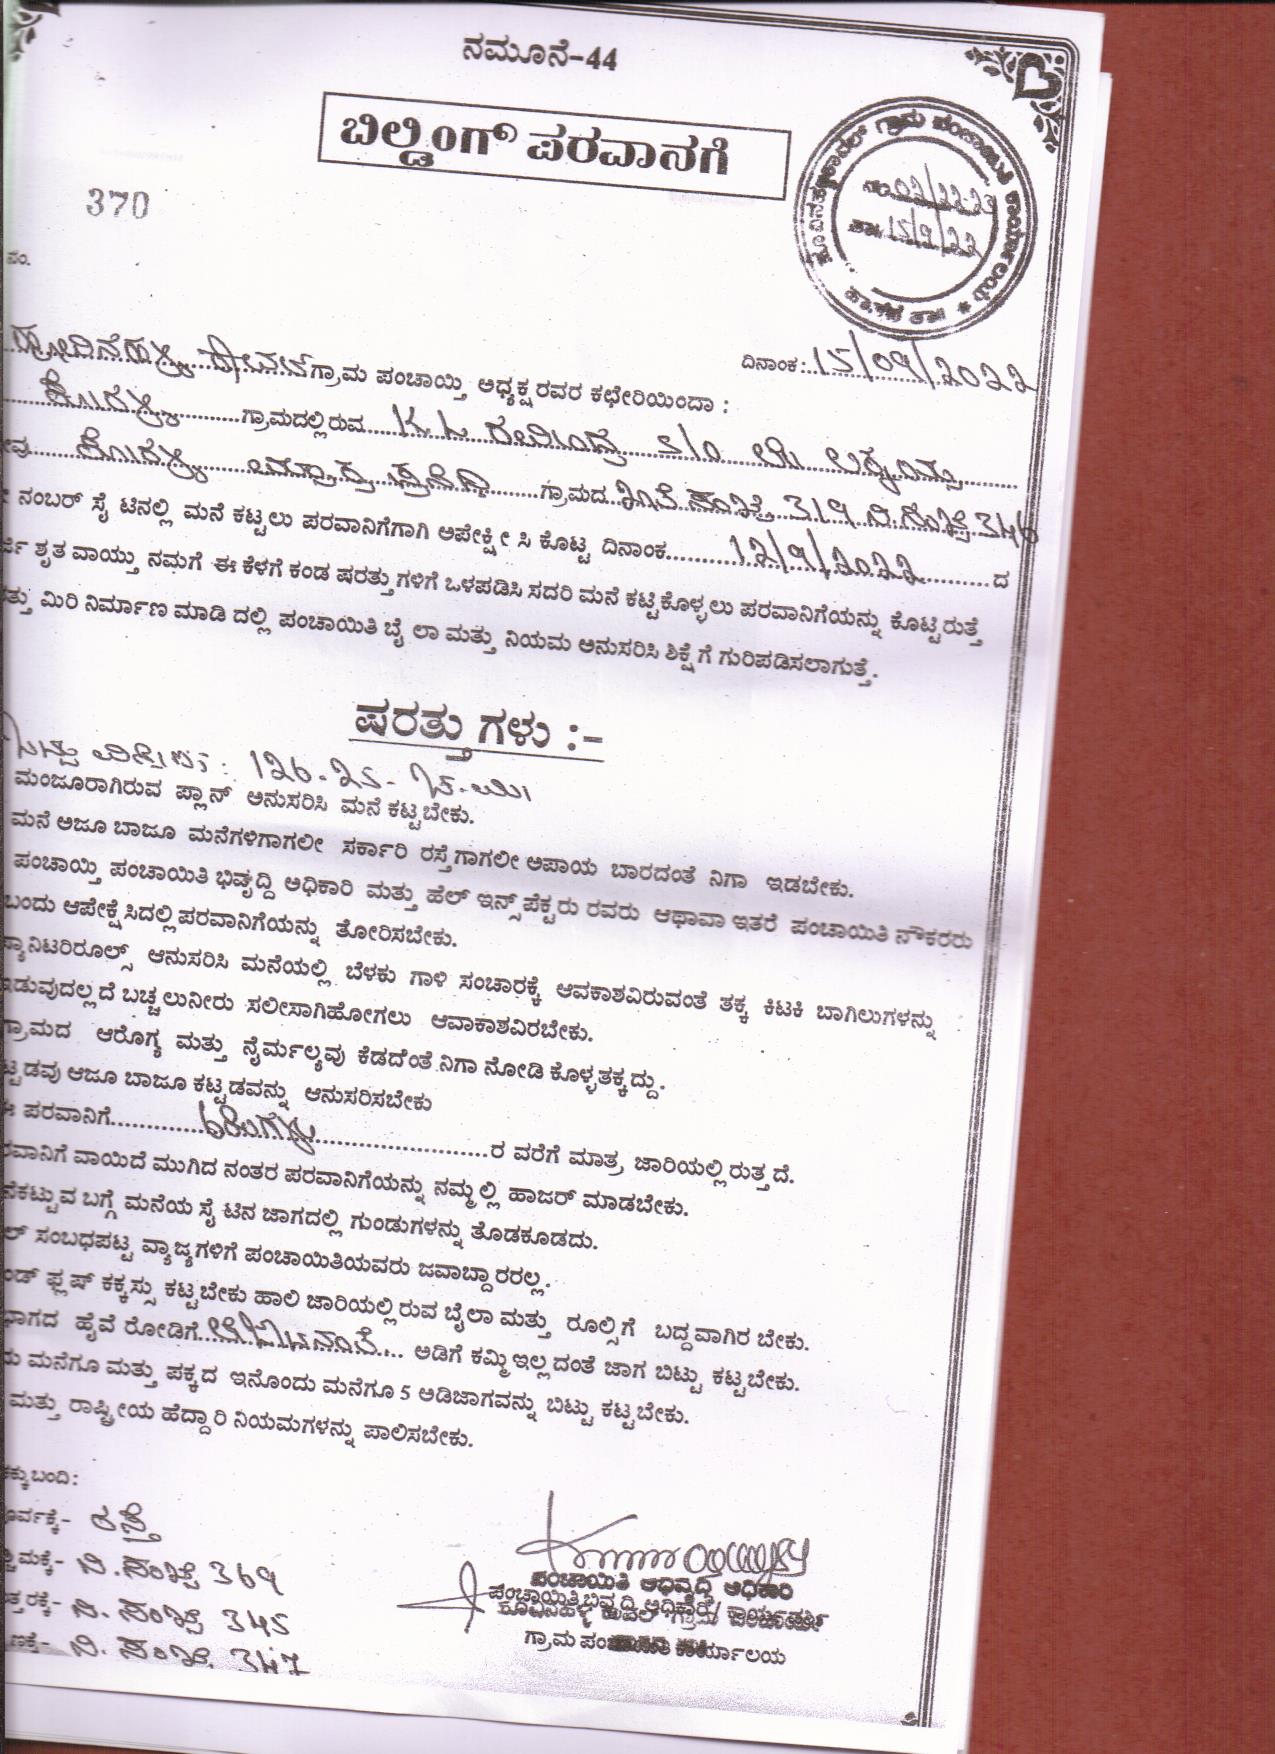 ನಮೂನೆ-44
ಬಿಲ್ಡಿಂಗ್ ಪರವಾನಗಿ
370
ಗ್ರಾಮ ಪಂಚಾಯಿತಿ ಕಾರ್ಯಾಲಯ
ನಂ:02/22-23
ತಾ:15/9/22
ನಂ.
ದಿನಾಂಕ:15/09/2022
ಗ್ರಾಮ ಪಂಚಾಯ್ತಿ ಅಧ್ಯಕ್ಷರವರ ಕಛೇರಿಯಿಂದಾ :
ಗ್ರಾಮದಲ್ಲಿರುವ K.L S/o
ಗ್ರಾಮದ 319 346
ನಂಬರ್ ಸೈಟಿನಲ್ಲಿ ಮನೆ ಕಟ್ಟಲು ಪರವಾನಿಗೆಗಾಗಿ ಅಪೇಕ್ಷೀಸಿ ಕೊಟ್ಟ ದಿನಾಂಕ 12/9/2022 ದ
ಶೃತ ವಾಯ್ತು ನಮಗೆ ಈ ಕೆಳಗೆ ಕಂಡ ಷರತ್ತುಗಳಿಗೆ ಒಳಪಡಿಸಿ ಸದರಿ ಮನೆ ಕಟ್ಟಿಕೊಳ್ಳಲು ಪರವಾನಿಗೆಯನ್ನು ಕೊಟ್ಟಿರುತ್ತೆ
ಮಿರಿ ನಿರ್ಮಾಣ ಮಾಡಿದಲ್ಲಿ ಪಂಚಾಯಿತಿ ಬೈಲಾ ಮತ್ತು ನಿಯಮ ಅನುಸರಿಸಿ ಶಿಕ್ಷೆಗೆ ಗುರಿಪಡಿಸಲಾಗುತ್ತೆ.
ಷರತ್ತುಗಳು :-
126-25-
ಮಂಜೂರಾಗಿರುವ ಪ್ಲಾನ್ ಅನುಸರಿಸಿ ಮನೆ ಕಟ್ಟಬೇಕು.
ಮನೆ ಅಜೂ ಬಾಜೂ ಮನೆಗಳಿಗಾಗಲೀ ಸರ್ಕಾರಿ ರಸ್ತೆಗಾಗಲೀ ಅಪಾಯ ಬಾರದಂತೆ ನಿಗಾ ಇಡಬೇಕು.
ಪಂಚಾಯ್ತಿ ಪಂಚಾಯಿತಿ ಭಿವೃದ್ದಿ ಅಧಿಕಾರಿ ಮತ್ತು ಹೆಲ್ ಇನ್ಸ್‌ಪೆಕ್ಟರು ರವರು ಆಥಾವಾ ಇತರೆ ಪಂಚಾಯಿತಿ ನೌಕರರು
ಬಂದು ಆಪೇಕ್ಷೆಸಿದಲ್ಲಿ ಪರವಾನಿಗೆಯನ್ನು ತೋರಿಸಬೇಕು.
ಸ್ಯಾನಿಟರಿರೂಲ್ಸ್ ಆನುಸರಿಸಿ ಮನೆಯಲ್ಲಿ ಬೆಳಕು ಗಾಳಿ ಸಂಚಾರಕ್ಕೆ ಆವಕಾಶವಿರುವಂತೆ ತಕ್ಕ ಕಿಟಕಿ ಬಾಗಿಲುಗಳನ್ನು
ಇಡುವುದಲ್ಲದೆ ಬಚ್ಚಲುನೀರು ಸಲೀಸಾಗಿಹೋಗಲು ಆವಾಕಾಶವಿರಬೇಕು.
ಗ್ರಾಮದ ಆರೊಗ್ಯ ಮತ್ತು ನೈರ್ಮಲ್ಯವು ಕೆಡದೆಂತೆ ನಿಗಾ ನೋಡಿ ಕೊಳ್ಳತಕ್ಕದ್ದು.
ಟ್ಟಡವು ಆಜೂ ಬಾಜೂ ಕಟ್ಟಡವನ್ನು ಆನುಸರಿಸಬೇಕು
ಈ ಪರವಾನಿಗೆ ರ ವರೆಗೆ ಮಾತ್ರ ಜಾರಿಯಲ್ಲಿರುತ್ತದೆ.
ರವಾನಿಗೆ ವಾಯಿದೆ ಮುಗಿದ ನಂತರ ಪರವಾನಿಗೆಯನ್ನು ನಮ್ಮಲ್ಲಿ ಹಾಜರ್ ಮಾಡಬೇಕು.
ನೆಕಟ್ಟುವ ಬಗ್ಗೆ ಮನೆಯ ಸೈಟಿನ ಜಾಗದಲ್ಲಿ ಗುಂಡುಗಳನ್ನು ತೊಡಕೂಡದು.
ಲ್ ಸಂಬಧಪಟ್ಟ ವ್ಯಾಜ್ಯಗಳಿಗೆ ಪಂಚಾಯಿತಿಯವರು ಜವಾಬ್ದಾರರಲ್ಲ.
ಂಡ್ ಫ್ಲಷ್ ಕಕ್ಕಸ್ಸು ಕಟ್ಟಬೇಕು ಹಾಲಿ ಜಾರಿಯಲ್ಲಿರುವ ಬೈಲಾ ಮತ್ತು ರೂಲ್ಸಿಗೆ ಬದ್ದವಾಗಿರ ಬೇಕು.
ಭಾಗದ ಹೈವೆ ರೋಡಿಗೆ ಅಡಿಗೆ ಕಮ್ಮಿಇಲ್ಲದಂತೆ ಜಾಗ ಬಿಟ್ಟು ಕಟ್ಟಬೇಕು.
ದು ಮನೆಗೂ ಮತ್ತು ಪಕ್ಕದ ಇನೊಂದು ಮನೆಗೂ 5 ಅಡಿಜಾಗವನ್ನು ಬಿಟ್ಟು ಕಟ್ಟಬೇಕು.
ಮತ್ತು ರಾಷ್ಟ್ರೀಯ ಹೆದ್ದಾರಿ ನಿಯಮಗಳನ್ನು ಪಾಲಿಸಬೇಕು.
ಕ್ಕುಬಂದಿ:
ರ್ವಕ್ಕೆ- ರಸ್ತೆ
ಮಕ್ಕೆ- ವಿ.ನಂಖ್ಯೆ 369
ತ್ತರಕ್ಕೆ- ವಿ.ನಂಖ್ಯೆ 345
ಣಕ್ಕೆ- ವಿ.ನಂಖ್ಯೆ 347
ಪಂಚಾಯಿತಿ ಅಭಿವೃದ್ಧಿ ಅಧಿಕಾರಿ
ಪಂಚಾಯಿತಿ ಭಿವೃದ್ದಿ ಅಧಿಕಾರಿ/ ಕಾರ್ಯದರ್ಶಿ
ಗ್ರಾಮ ಪಂಚಾಯಿತಿ ಕಾರ್ಯಾಲಯ